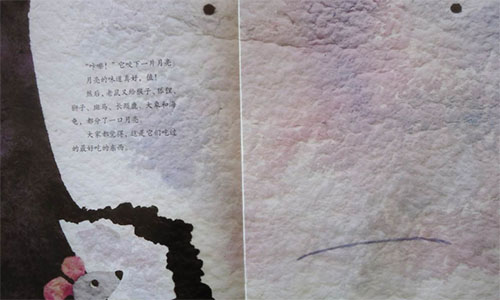 “咔嚓!”它咬下一片月亮
月亮的味道真好,值!
然后,老鼠又给猴子、狐狸
狮子、斑马、长颈鹿、大象和海
龟,都分了一口月亮
大家都觉得,这是它们吃过
的最好吃的东西。